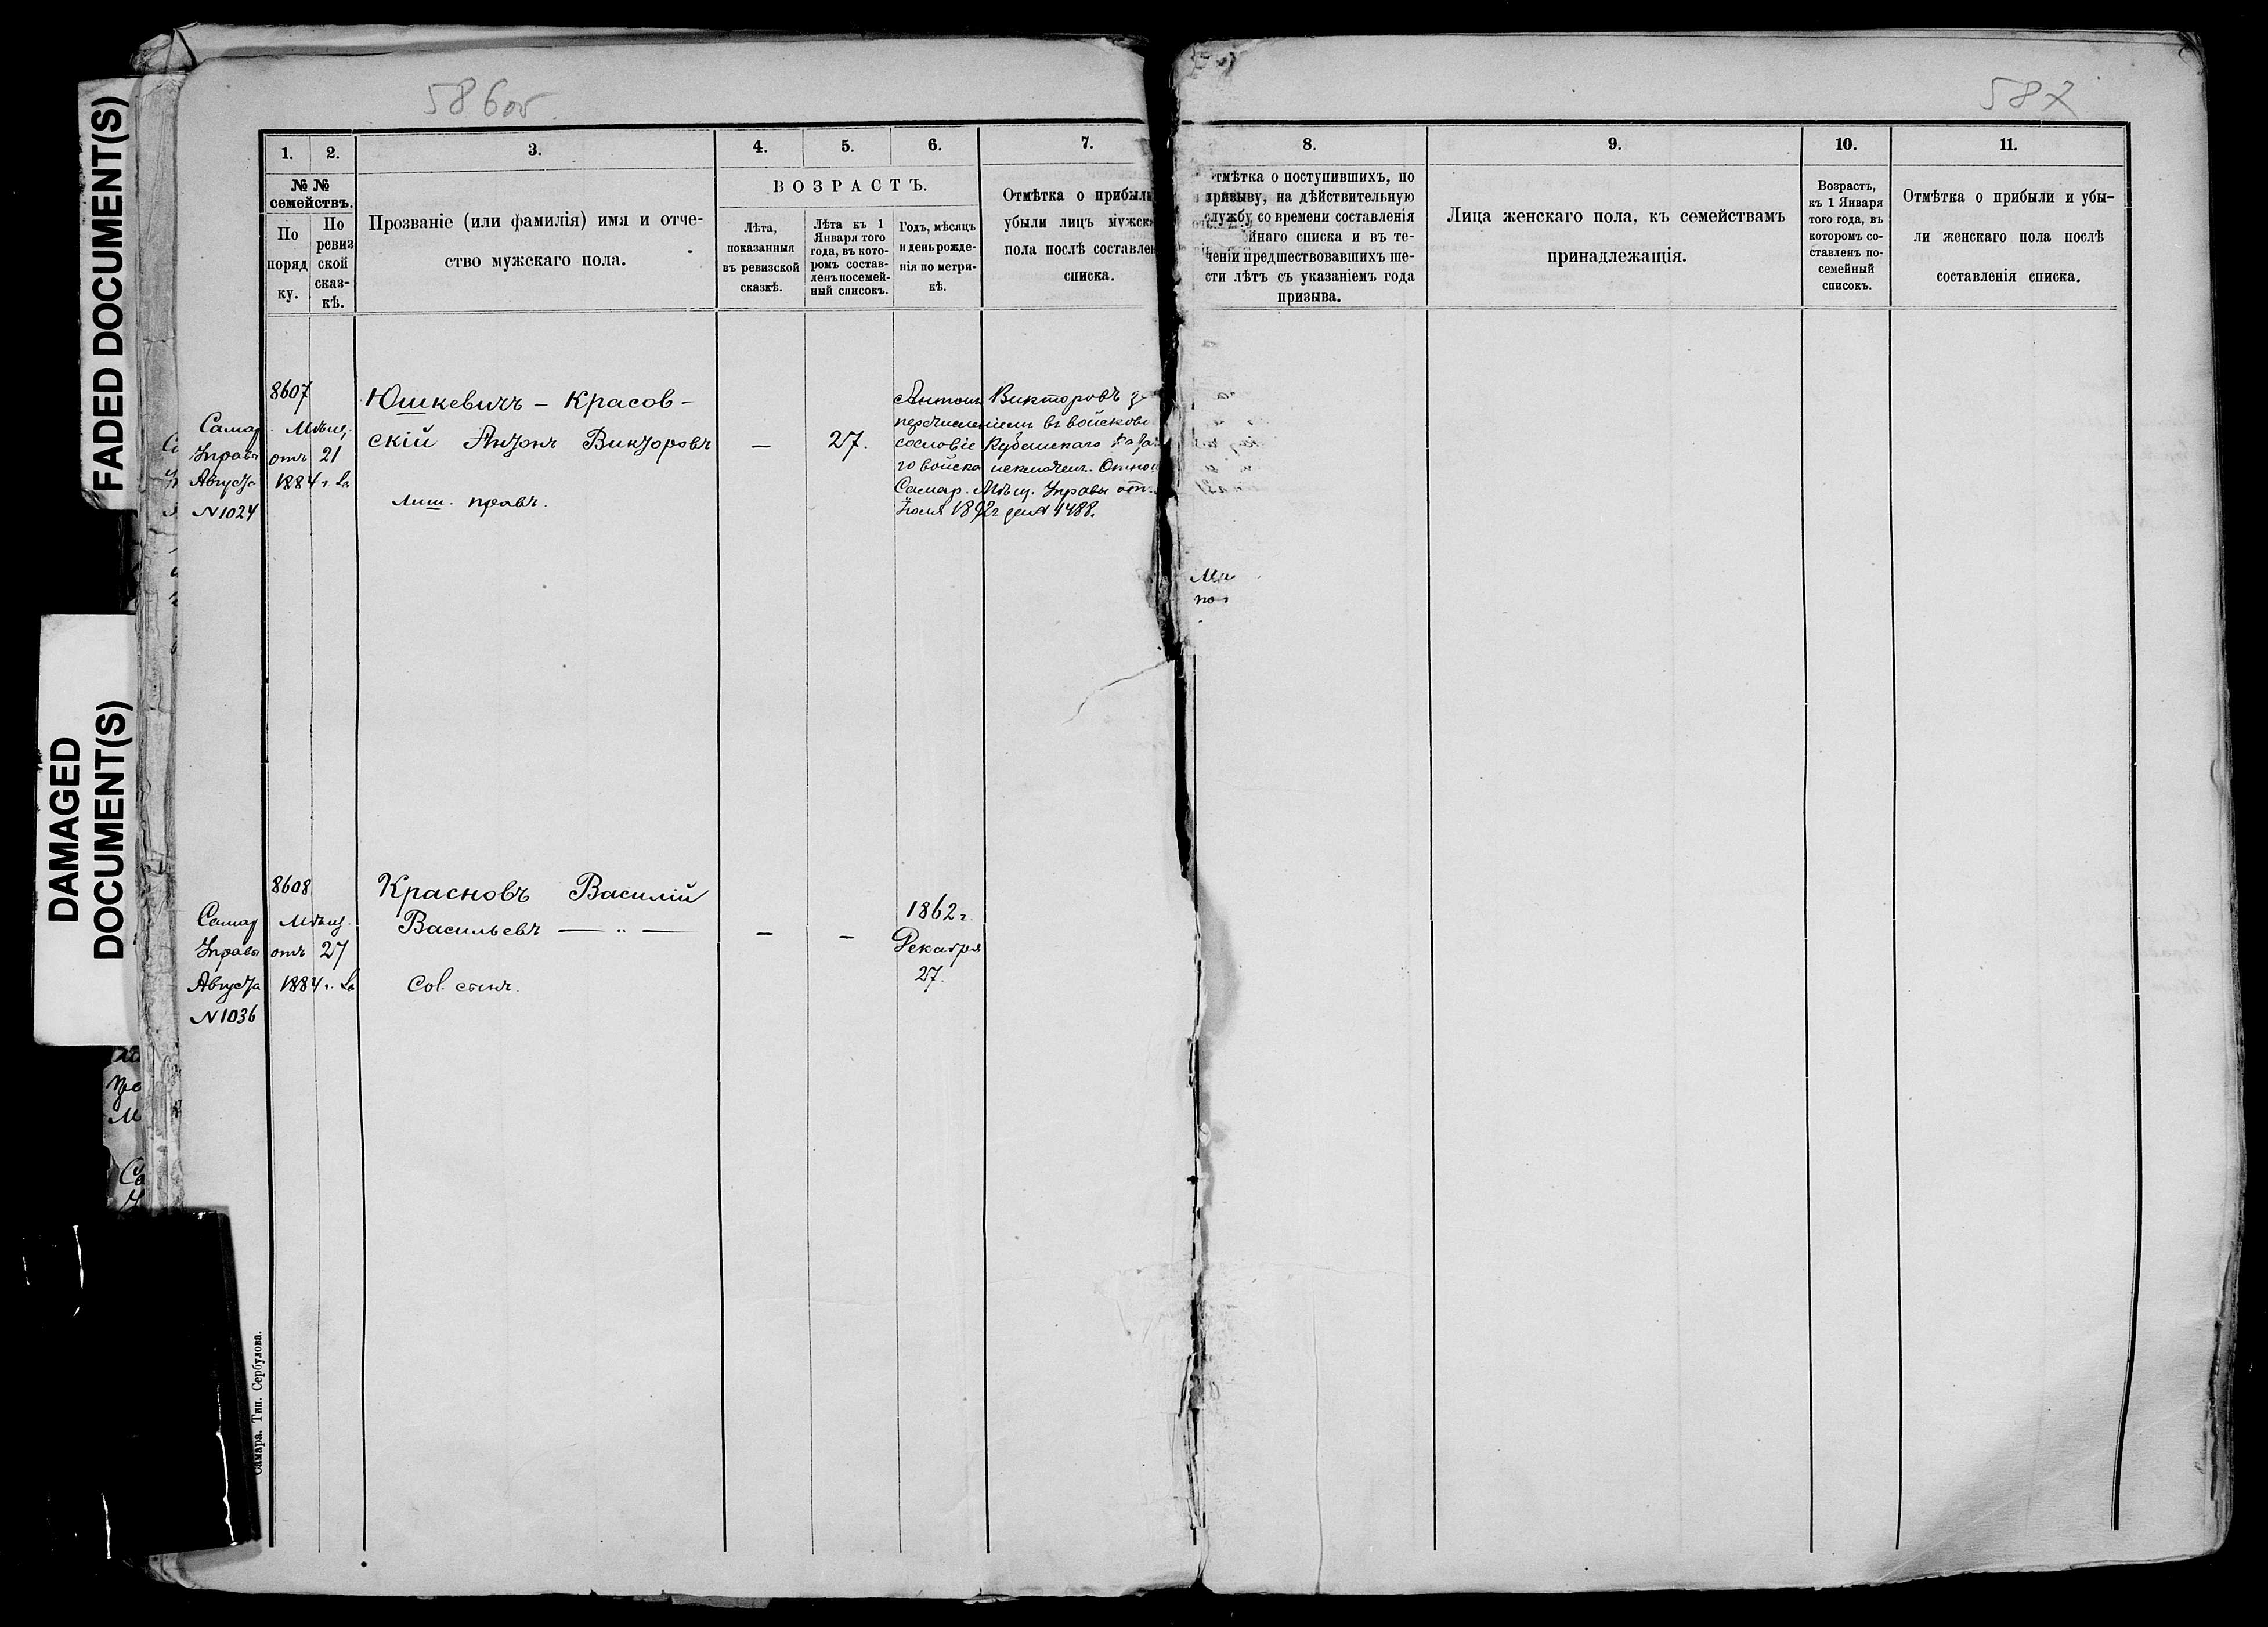 FADED DOCUMENT(S)
DAMAGED
DOCUMENT(S)
586об
587
1. 2. 3. 4. 5. 6. 7. 8. 9. 10. 11.
№ №
семействъ.
По
поряд
ку.
По
ревиз
ской
сказ-
кѣ.
Прозваніе (или фамилія) имя и отче-
ство мужскаго пола.
ВОЗРАСТЪ.
Лѣта,
показанныя
въ ревизской
сказкѣ.
Лѣта къ 1
Января того
года, въ кото-
ромъ состав-
ленъ посемей-
ный списокъ.
Годъ, мѣсяцъ
и день рожде-
нія по метри-
кѣ.
Отмѣтка о прибыли
убыли лицъ мужск
пола послѣ составлен
списка.
тмѣтка о поступившихъ, по
призыву, на дѣйствительную
службу со времени составленія
ейнаго списка и въ те-
ченіи предшествовавшихъ ше-
сти лѣтъ съ указаніемъ года
призыва.
Лица женскаго пола, къ семействамъ
принадлежащія.
Возрастъ,
къ 1 Января
того года, въ
которомъ со-
ставленъ по-
семейный
списокъ.
Отмѣтка о прибыли и убы-
ли женскаго пола послѣ
составленія списка.
8607
Самар. Мѣщ.
Управы отъ 21
Августа 1884 г. за
№ 1024
Юшкевичъ - Красов-
скій Антонъ Викторовъ — 27.
Лиш. правъ.
Антонъ Викторовъ за
перечисленіемъ въ войсково
сословіе Кубанскаго Казач
го войска исключенъ. Отнош
Самар. Мѣщ. Управы от
Іюля 1892 г за № 1488.
Ма
по
8608
Самар Мѣщ.
Управы отъ 27
Августа 1884 г. за
№ 1036
Красновъ Василій
Васильевъ — „ — — —
Сол. сынъ.
1862 г
Декабря
27.
Самара. Тип. Сербулова.